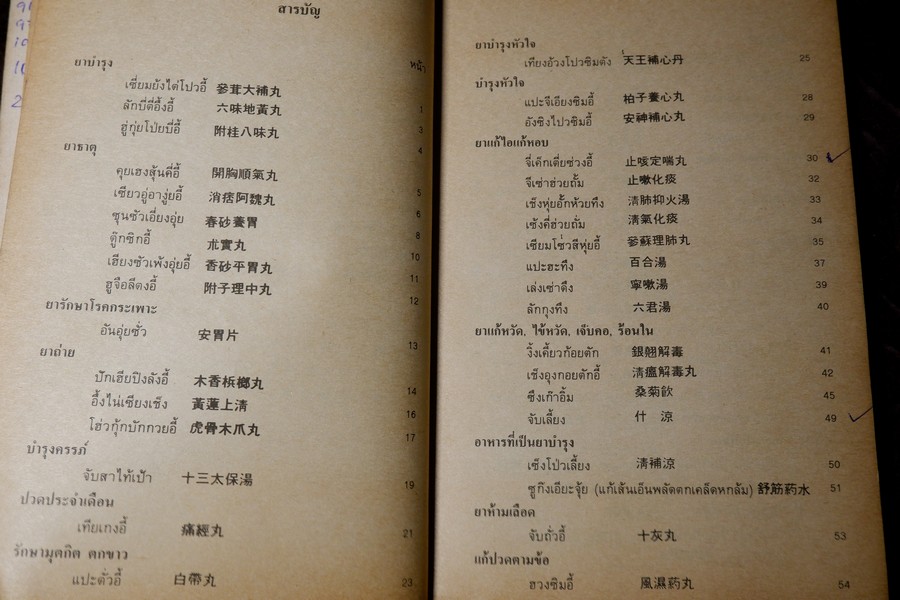 สารบัญ
หน้า
ยาบำรุง
เซี่ยมย้งไต่โปวอี้ 參茸大補丸 1
ลักบี่ตี่อึ้งอี้ 六味地黃丸 3
ฮู่กุ่ยโป่ยบี่อี้ 附桂八味丸 4
ยาธาตุ
คุยเฮงสุ้นคี่อี้ 開胸順氣丸 5
เซียวอู่อางู่ยอี้ 消痞阿魏丸 6
ชุนซัวเอี่ยงอุ่ย 春砂養胃 8
ตู๊กซิกอี้ 朮實丸 10
เฮียงซัวเพ้งอุ่ยอี้ 香砂平胃丸 11
ฮูจือลีตงอี้ 附子理中丸 12
ยารักษาโรคกระเพาะ
อันอุ่ยซั่ว 安胃片 13
ยาถ่าย
ปักเฮียปิงลังอี้ 木香梹榔丸 14
อึ้งไน่เซียงเซ็ง 黃蓮上清 16
โฮ่วกุ้กบักกวยอี้ 虎骨木爪丸 17
บำรุงครรภ์
จับสาไท้เป้า 十三太保湯 19
ปวดประจำเดือน
เทียเกงอี้ 痛經丸 21
รักษามุตกิต ตกขาว
แปะตั่วอี้ 白帶丸 23
ยาบำรุงหัวใจ
เทียงอ้วงโปวซิมตัง 天王補心丹 25
บำรุงหัวใจ
แปะจีเอียงซิมอี้ 柏子養心丸 28
อังซิงโปวซิมอี้ 安神補心丸 29
ยาแก้ไอแก้หอบ
จี่เค็กเตี่ยช่วงอี้ 止咳定喘丸 30
จี่เซ่าฮ่วยถั้ม 止嗽化痰 32
เช็งหุ่ยอั้กห้วยทึง 清肺抑火湯 33
เช้งคี่ฮ่วยถั่ม 清氣化痰 34
เซียมโซ่วสีหุ่ยอี้ 參蘇理肺丸 35
แปะฮะทึง 百合湯 37
เล่งเซ่าตึง 寧嗽湯 39
ลักกุงทึง 六君湯 40
ยาแก้หวัด, ไข้หวัด, เจ็บคอ, ร้อนใน
งิ้งเคี้ยวก้อยตัก 銀翹解毒 41
เช็งอุงกอยตักอี้ 清瘟解毒丸 42
ซึงเก๊าอิ้ม 桑菊飲 45
จับเลี้ยง 什涼 49
อาหารที่เป็นยาบำรุง
เช็งโป่วเลี้ยง 清補涼 50
ซูกึงเอียะจุ้ย (แก้เส้นเอ็นพลัดตกเคล็ดหกล้ม) 舒筋葯水 51
ยาห้ามเลือด
จับถั่วอี้ 十灰丸 53
แก้ปวดตามข้อ
ฮวงซิมอี้ 風濕葯丸 54